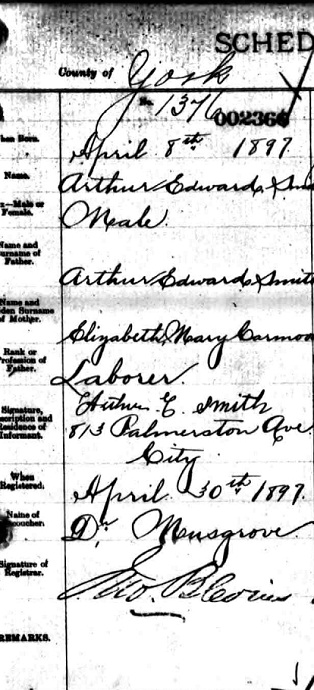 SCHED
County of York
No. 1376
002366
hen Born.
April 8th 1897
Name.
Arthur Edward Smi
x—Male or
Female.
Meale.
Name and
urname of
Father.
Arthur Edward Smit
Name and
den Surname
of Mother.
Elizabeth Mary Carmo
Rank or
rofession of
Father.
Laborer.
Signature,
scription and
esidence of
Informant.
Arthur E. Smith
813 Palmerston Ave
City
When
Registered.
April 30th 1897.
Name of
coucher.
Dr. Musgrove
Signature of
Registrar.
REMARKS.